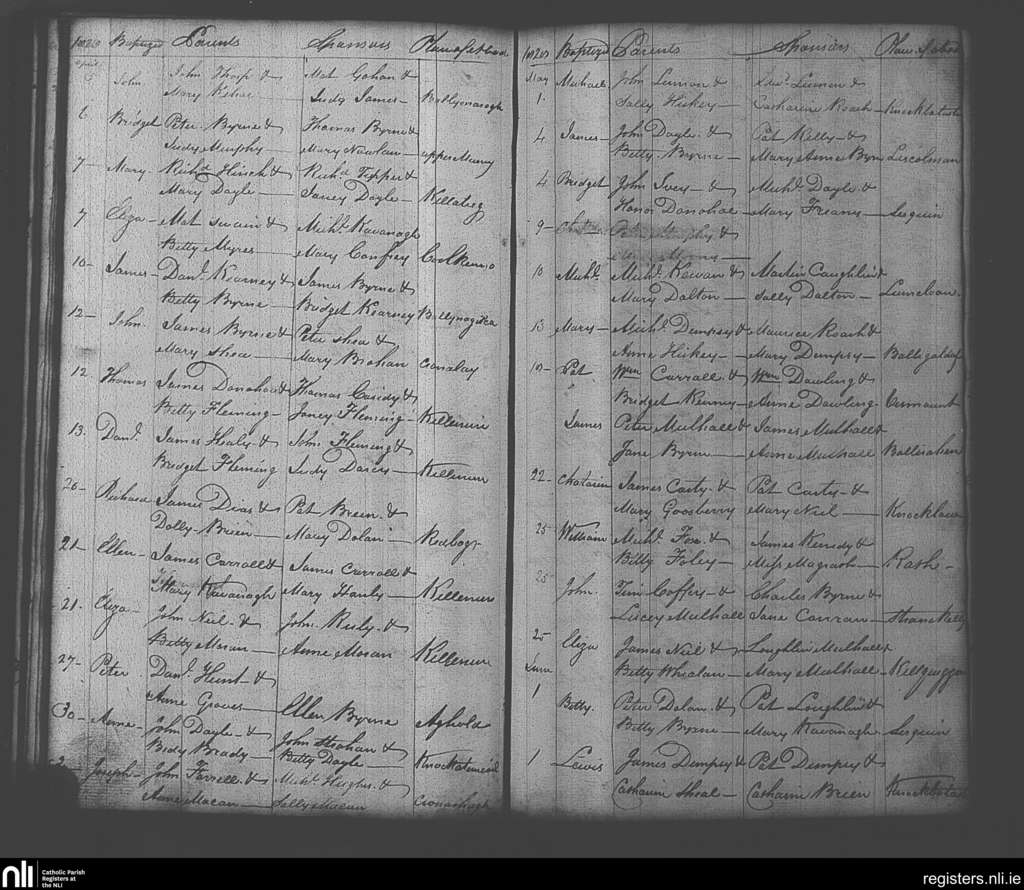 1820 Baptized Parents Sponsors Place of abode
April
5 John John Tharp & Mat Gahan &
Mary Kehoe Judy James Ballynavagh
6 Bridget Peter Byrne & Thomas Byrne &
Judy Murphy Mary Nowlan upper Munny
7 Mary Richd Hinch & Richd Tipper &
Mary Doyle Janey Doyle Killabeg
7 Eliza Mat Swain & Michl Kavanagh
Betty Myres Mary Confrey Coolkenno
10 James Danl Kearney & James Byrne &
Betty Byrne Bridget Kearney
12 John James Byrne & Peter Shea &
Mary Shea Mary Brohan Cronalay
12 Thomas James Donohoe & Thomas Casidy &
Betty Fleming Janey Fleming Killenure
13 Danl James Healy & John Fleming &
Bridget Fleming Judy Darcy Killenure
20 Richard James Dias & Pat Breen &
Dolly Breen Mary Dolan Redbog
21 Ellen James Carroll & James Carroll &
Mary Kavanagh Mary Hanly Killenure
21 Eliza John Neil & John Ruly &
Betty Moran Anne Moran Killenure
27 Peter Danl Hunt &
Anne Graves Ellen Byrne Aghold
30 Anne John Doyle & John Strahan &
Bidy Brady Betty Doyle
Joseph John Farrell & Michl Hughes &
Anne Sally
1820 Baptized Parents Sponsors Place of abode
May
1 Michael John Lennon & Edwd Lennon &
Sally Hickey Catharine Roach
4 James John Doyle & Pat Kelly &
Betty Byrne Mary Anne Byrn Liscolman
4 Bridget John Ivers & Michl Doyle &
Honor Donohoe Mary Franes Seskin
9 Murphy &
10 Michl Michl Kewan & Martin Caughlin &
Mary Dalton Sally Dalton
13 Mary Michl Dempsy & Maurice Roach &
Anne Hickey Mary Dempsy
19 Pat Wm Carrall & Wm Dowling &
Bridget Kenny Anne Dowling Urmount
James Peter Mulhall & James Mulhall &
Jane Byrne Anne Mulhall
22 Chatarin James Carty & Pat Carty &
Mary Goosberry Mary Neil
25 William Michl Fox & James Kenedy &
Betty Foley Miss Magrath Rath
25 John Tim Coffey & Charles Byrne &
Lucey Mulhall Jane Curran
25 Eliza James Neil & Loughlin Mulhall &
June Betty Whealan Mary Mulhall
1 Betty Peter Dolan & Pat Loughlin &
Betty Byrne Mary Kavanagh Seskin
1 Lewis James Dempsy & Pat Dempsy &
Catharin Sheal Catharin Breen
nli Catholic Parish
Registers at
the NLI
registers.nli.ie